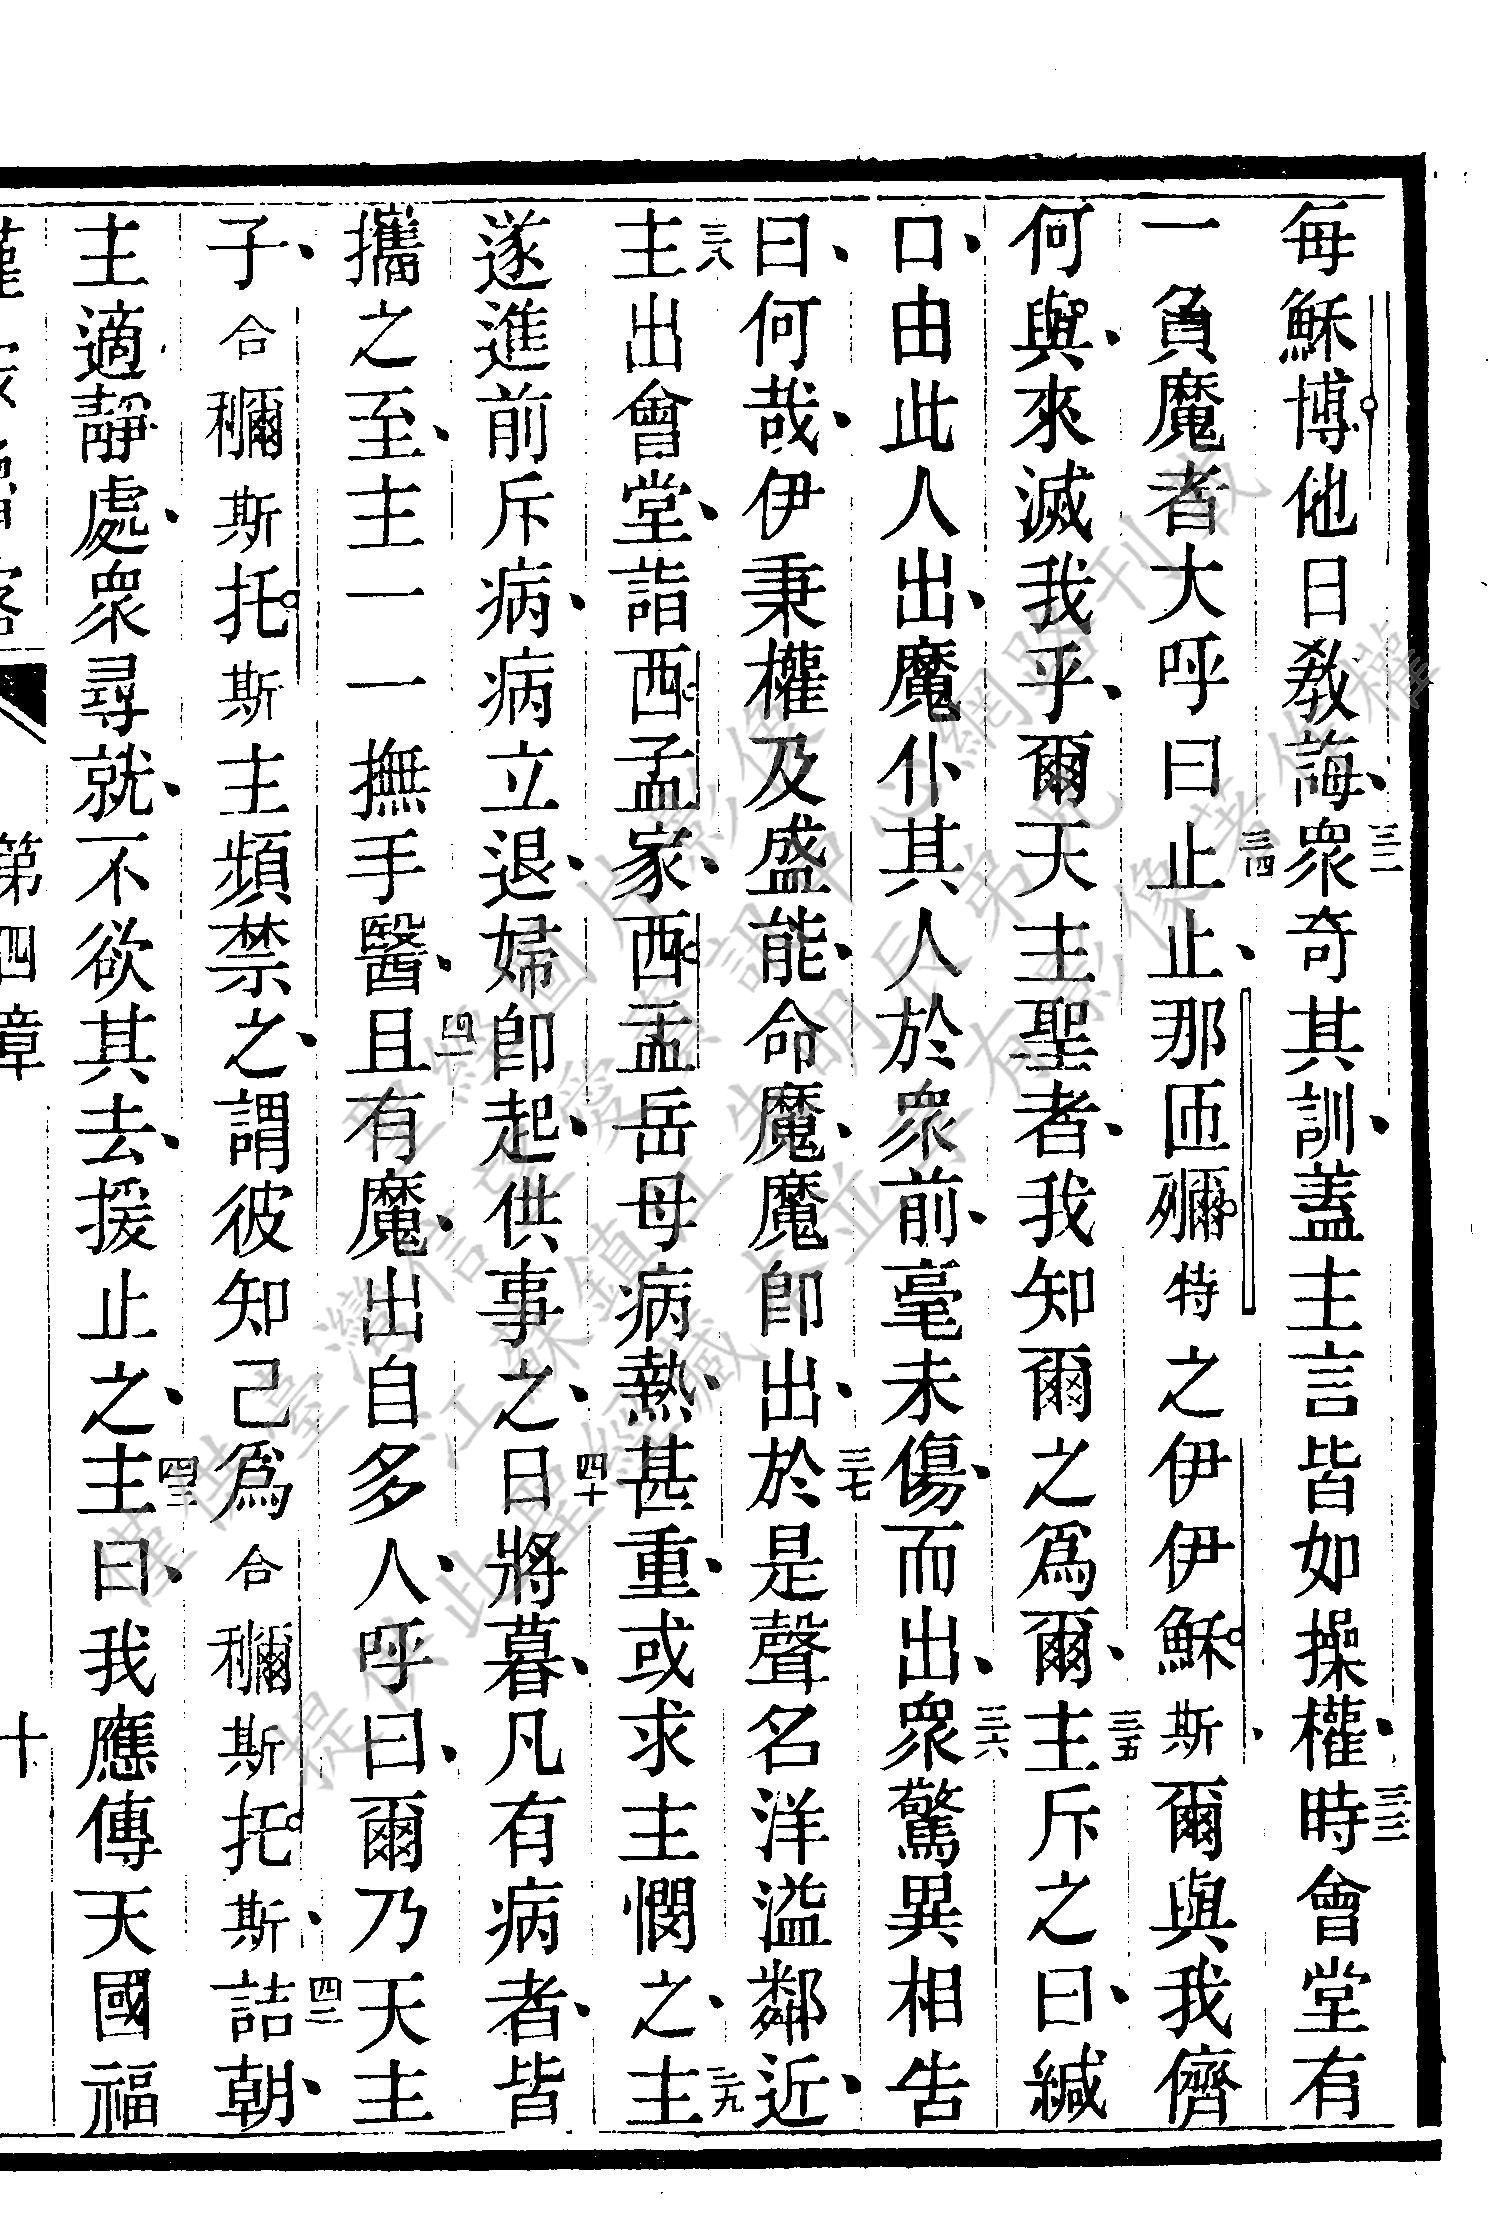 每穌博他日敎誨、三二衆奇其訓、蓋主言皆如操權、三三時會堂有
一負魔者大呼曰三四止止、那匝𥜥特之伊伊穌斯、爾與我儕
何與、來滅我乎、爾天主聖者、我知爾之爲爾、三五主斥之曰、緘
口、由此人出、魔仆其人於衆前、毫未傷而出、三六衆驚異相告
曰、何哉、伊秉權及盛能、命魔、魔卽出、三七於是聲名洋溢鄰近、
三八主出會堂、詣西孟家、西孟岳母病熱甚重、或求主憫之、三九主
遂進前斥病、病立退、婦卽起供事之、四十日將暮、凡有病者、皆
攜之至、主一一撫手醫、四一且有魔、出自多人、呼曰、爾乃天主
子、合斯托斯主頻禁之、謂彼知己爲合斯托斯、四二詰朝、
主適靜處、衆尋就、不欲其去、援止之、四三主曰、我應傳天國福
第四章
十